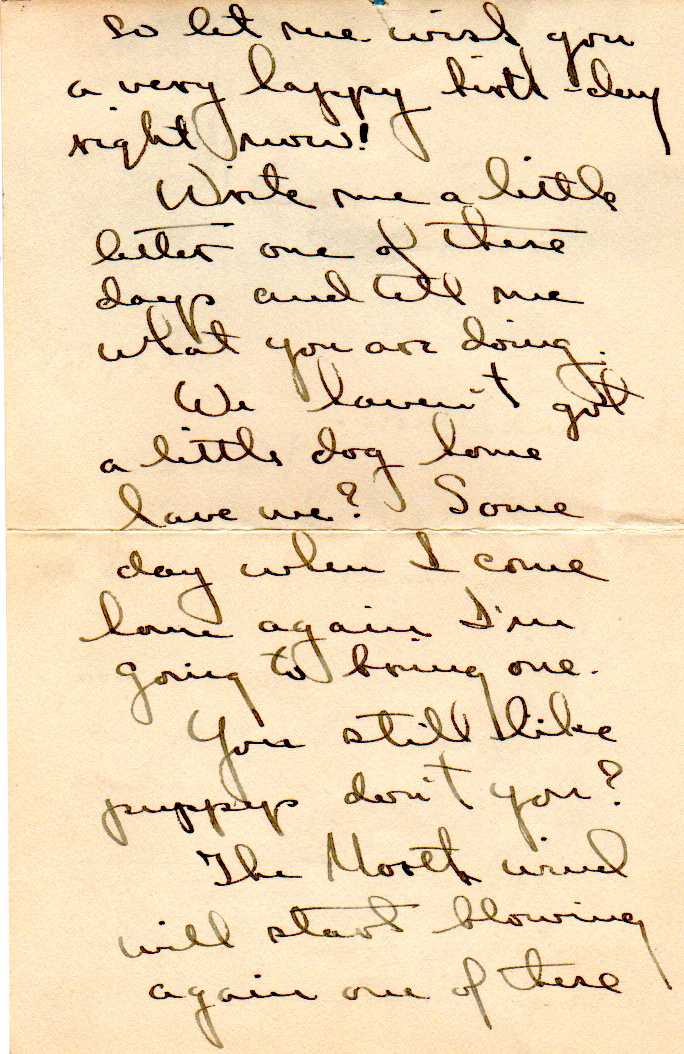 so let me wish you
a very happy birth-day
right now!
Write me a little
letter one of these
days and tell me
what you are doing.
We haven't got
a little dog home
have we? Some
day when I come
home again I'm
going to bring one.
You still like
puppys don't you?
The North wind
will start blowing
again one of these